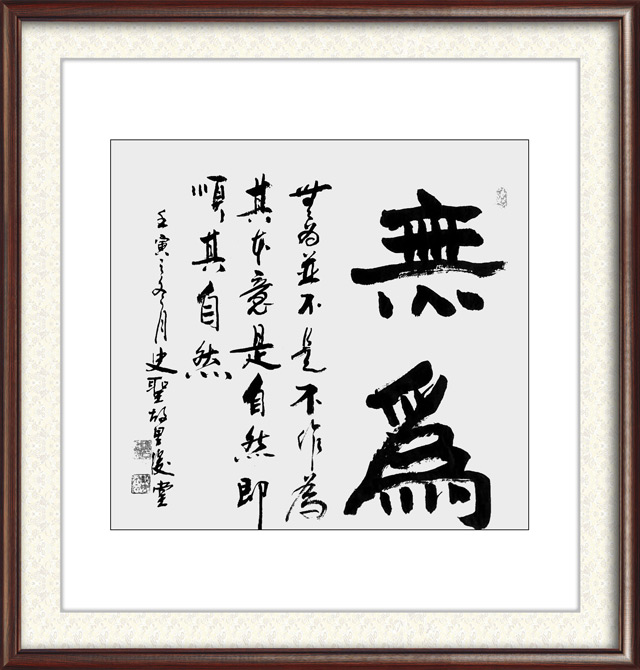 無爲
無為並不是不作為
其本意是自然即
順其自然
壬寅之冬月史聖故里堂